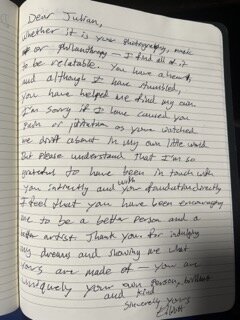 Dear Julian,
Whether it is your photography, music
or philanthropy — I find all of it
to be relatable. You have a heart,
and although I have stumbled,
you have helped me find my own.
I'm sorry if I have caused you
pain or frustration as you watched
me drift about in my own little world.
But please understand that I'm so
grateful to have been in touch with
you indirectly and with your foundation directly
I feel that you have been encouraging
me to be a better person and a
better artist. Thank you for indulging
my dreams and showing me what
yours are made of — you are
uniquely your own person, brilliant
and kind
Sincerely yours